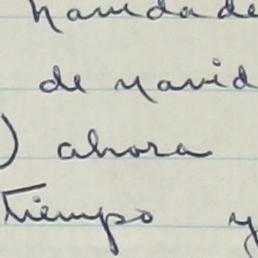 Navidade
de Navid
) ahora
Tiempo y